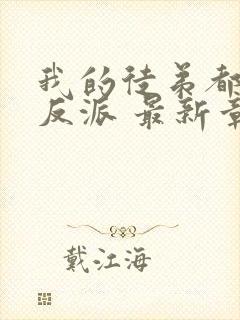 我的徒弟都
反派 最新章
戴江海